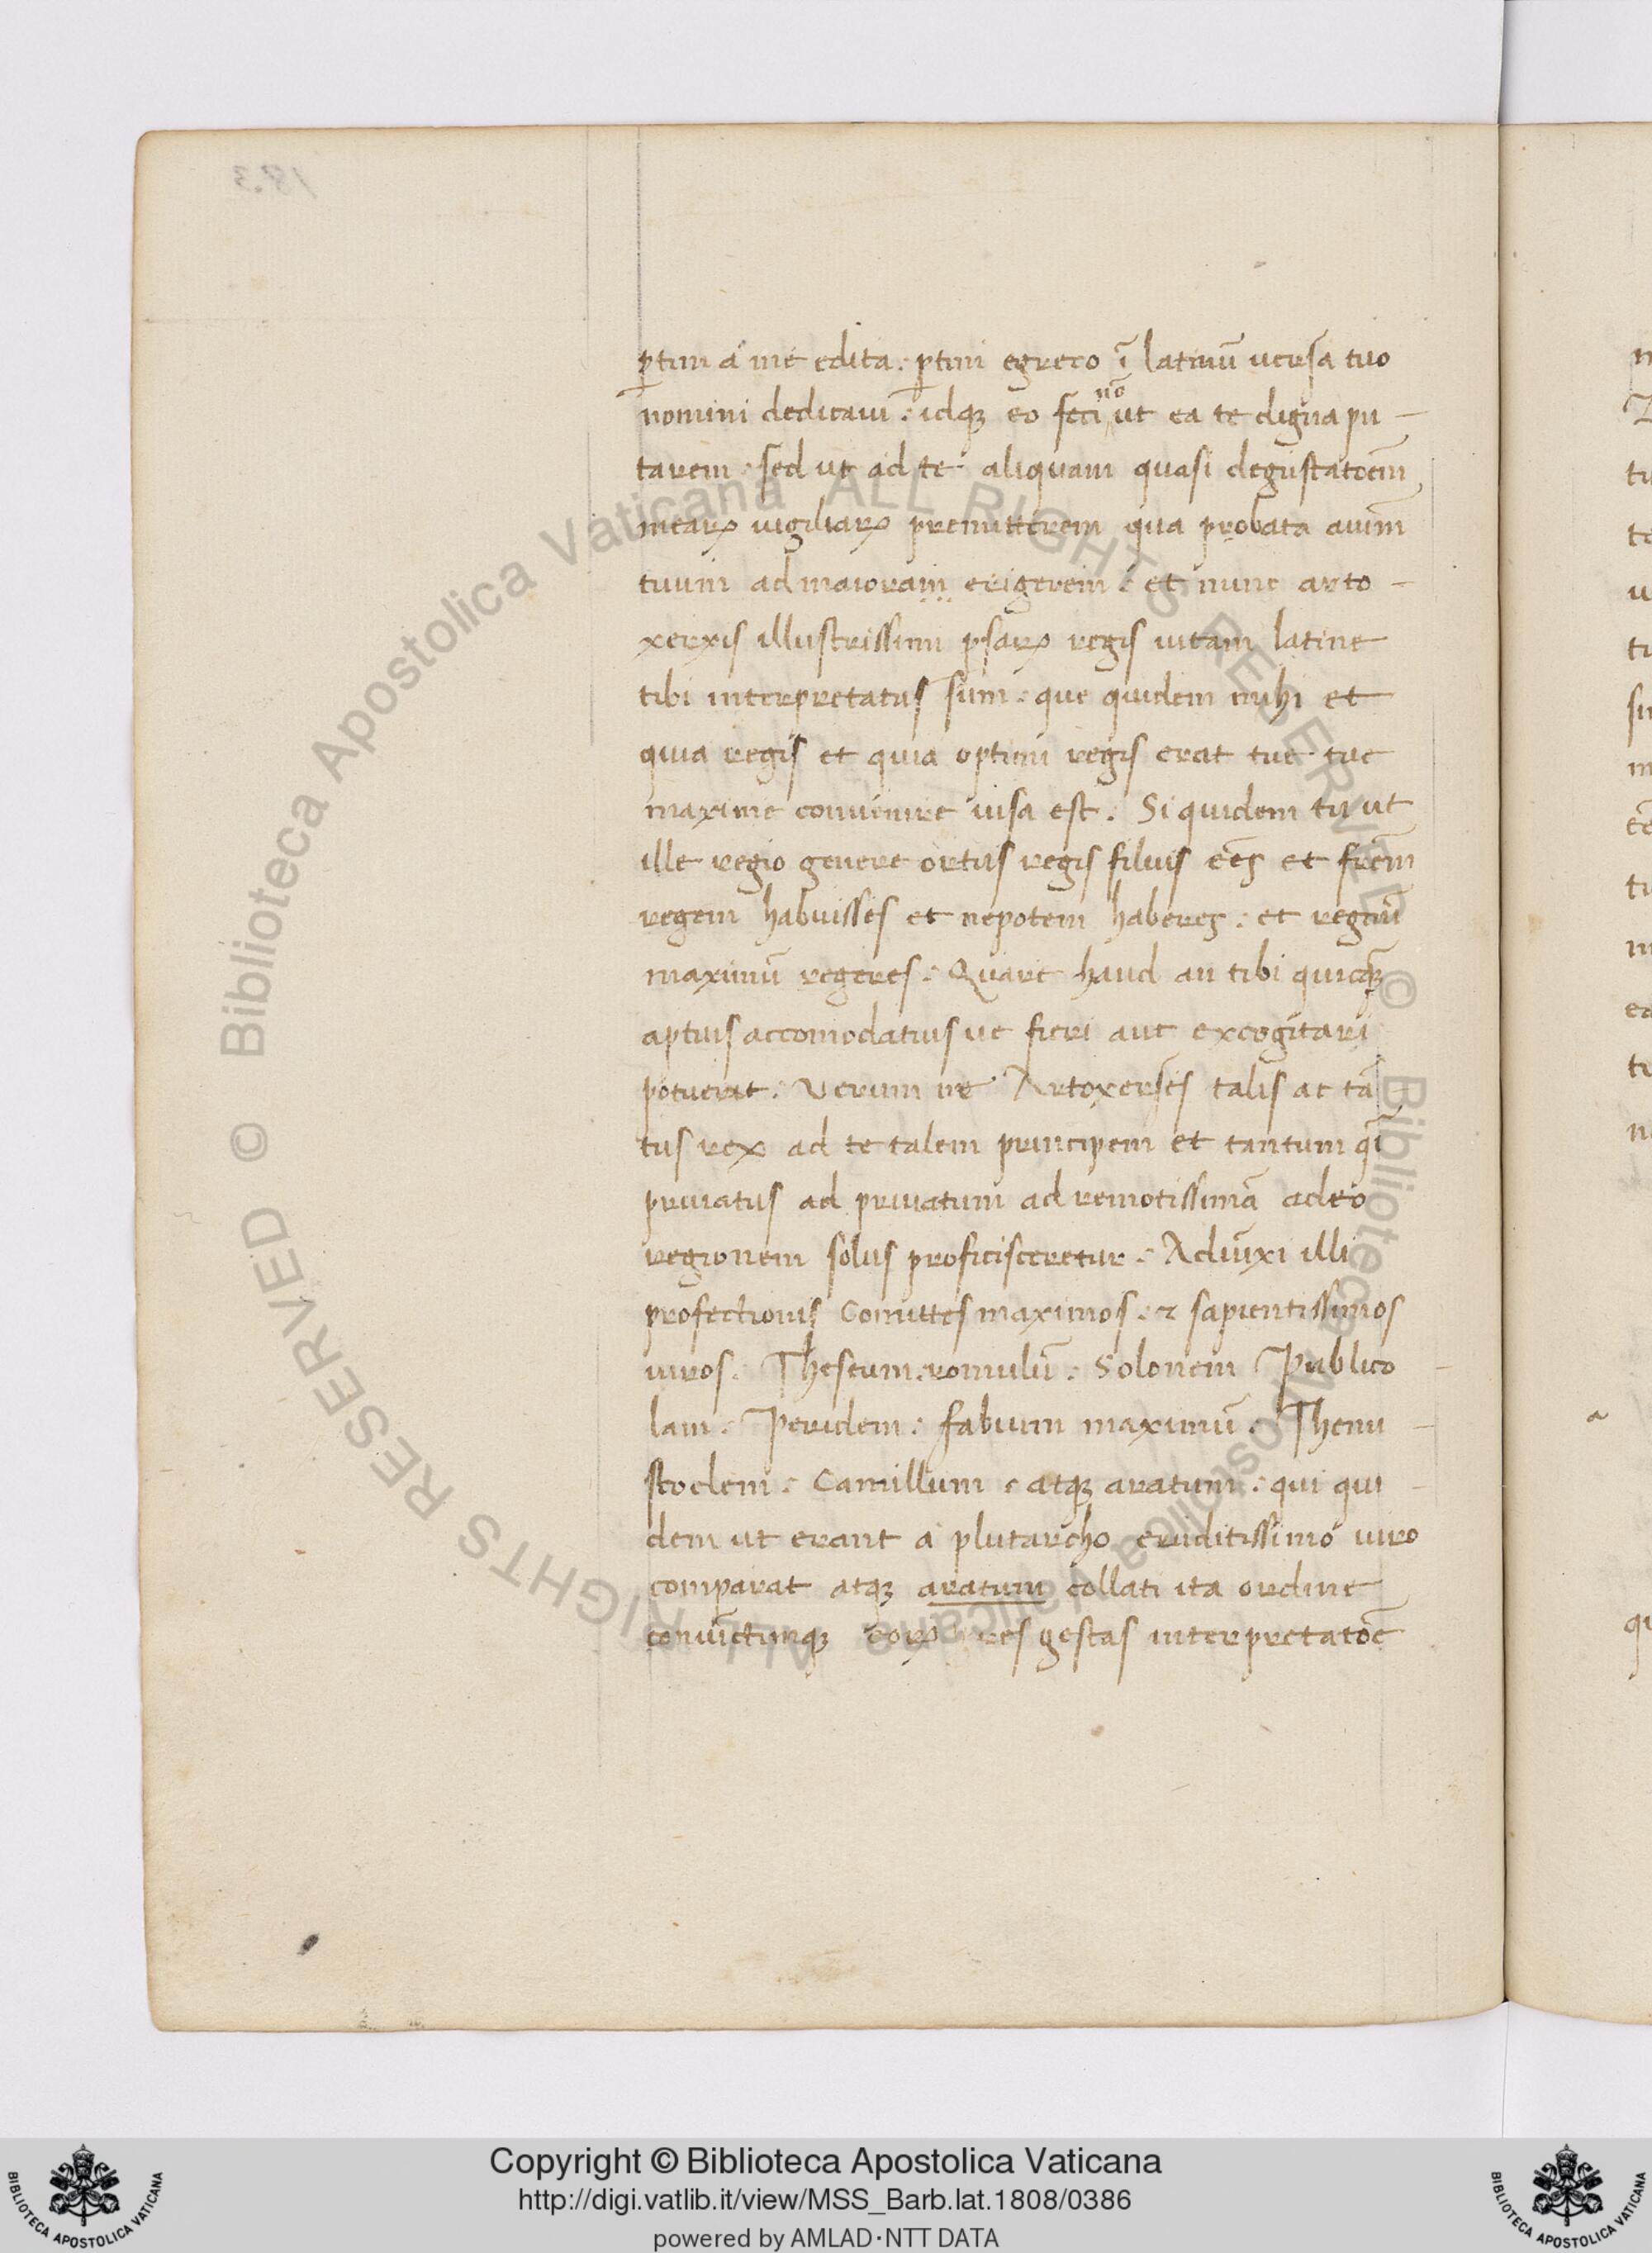 ꝑtim a me edita. ꝑtim egreco ī latinū uersa tuo
nomini dedicaui: idqꝫ eo feci nō ut ea te digna pu-
tarem. sed ut ad te aliquam quasi degustatōem
mearꝝ uigiliarꝝ premitterem qua probata animū
tuum ad maioram erigerem: et nunc arto-
xerxis illustrissimi ꝑsarꝝ regis uitam latine
tibi interpretatus sum. que quidem mihi et
quia regis et quia optimi regis erat tue tue
maxime conuenire uisa est. Si quidem tu ut
ille regio genere ortus regis filius eēs et frēm
regem habuisses et nepotem haberes. et regnū
maximū regeres. Quare haud an tibi quicqꝫ
aptius accomodatius ue fieri aut excogitari
potuerit. Verum ne Artoxerses talis ac tā
tus rex ad te talem principem et tantum qī
priuatus ad priuatum ad remotissimā adeo
regionem solus proficisceretur. Adiūxi illi
profectionis Comittes maximos. & sapientissimos
uiros. Theseum. romulū. Solonem Publico-
lam. Periclem. fabium maximū. Themi-
stoclem. Camillum. atqꝫ aratum. qui qui-
dem ut erant a plutarcho eruditissimo uiro
comparat atqꝫ aratum collati ita ordine
conuīctimqꝫ eorꝝ res gestas interpretatōe
Copyright © Biblioteca Apostolica Vaticana
http://digi.vatlib.it/view/MSS_Barb.lat.1808/0386
powered by AMLAD·NTT DATA
BIBLIOTECA APOSTOLICA VATICANA
BIBLIOTECA APOSTOLICA VATICANA
© Biblioteca Apostolica Vaticana ALL RIGHTS RESERVED
© Biblioteca Apostolica Vaticana ALL RIGHTS RESERVED